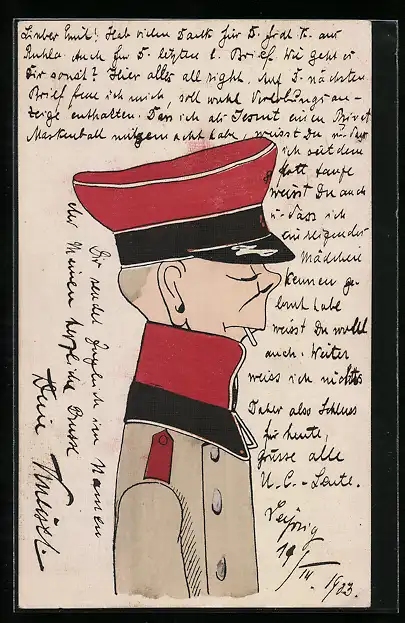 Lieber Emil! Hab vielen Dank für D. frdl. K. aus
Ruhla. Auch für D. letzten l. Brief. Wie geht es
Dir sonst? Hier alles all right. Auf D. nächsten
Brief freue ich mich, soll wohl Verlobungsan-
zeige enthalten. Dass ich als einen
Maskenball mitgemacht habe, weisst Du u. dass
ich seit dem
flott
weisst Du auch
u. dass ich
ein reizendes
Mädchen
kennen ge-
lernt habe
weisst Du wohl
auch. Weiter
weiss ich nichts
Daher also Schluss
für heute,
Grüsse alle
U.-C.-Leute.
Leipzig
19/ 1903.
Dir sendet zugleich im Namen
der Meinen herzliche Grüsse
Dein